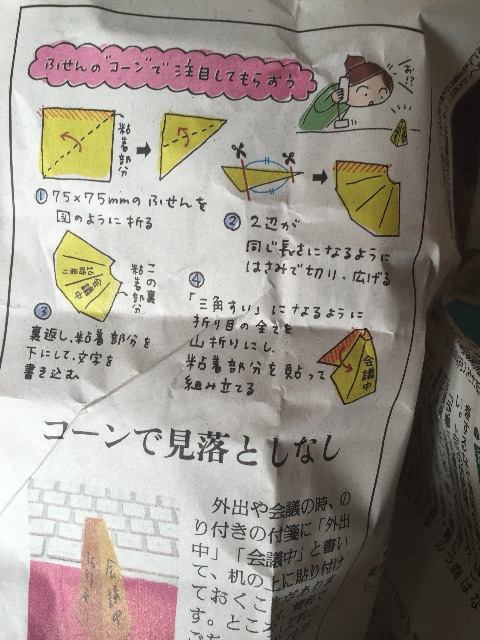 ふせんの"コーン"で注目してもらおう
あ!?
粘着部分
① 75×75mmのふせんを
図のように折る
② 2辺が
同じ長さになるように
はさみで切り、広げる
この裏
粘着部分
会議中
③
裏返し、粘着部分を
下にして、文字を
書き込む
④
「三角すい」になるように
折り目の全てを
山折りにし、
粘着部分を貼って
組み立てる
会議中
コーンで見落としなし
外出や会議の時、の
り付きの付箋に「外出
中」「会議中」と書い
て、机の上に貼り付け
ておくこ
す。とこ
会議中